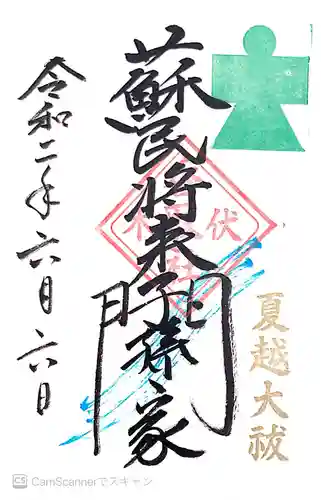 夏越大祓
蘇民将来子孫家門
令和二年六月六日
CS CamScannerでスキャン